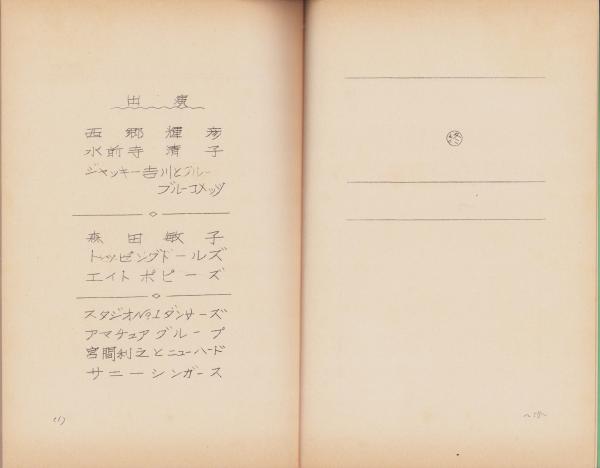 出演
西郷輝彦
水前寺清子
ジャッキー吉川とブルー
ブルーコメッツ
森田敏子
トッピングドールズ
エイトポピーズ
スタジオNo.1ダンサーズ
アマチュアグループ
宮間利之とニューハード
サニーシンガース
(1)
終